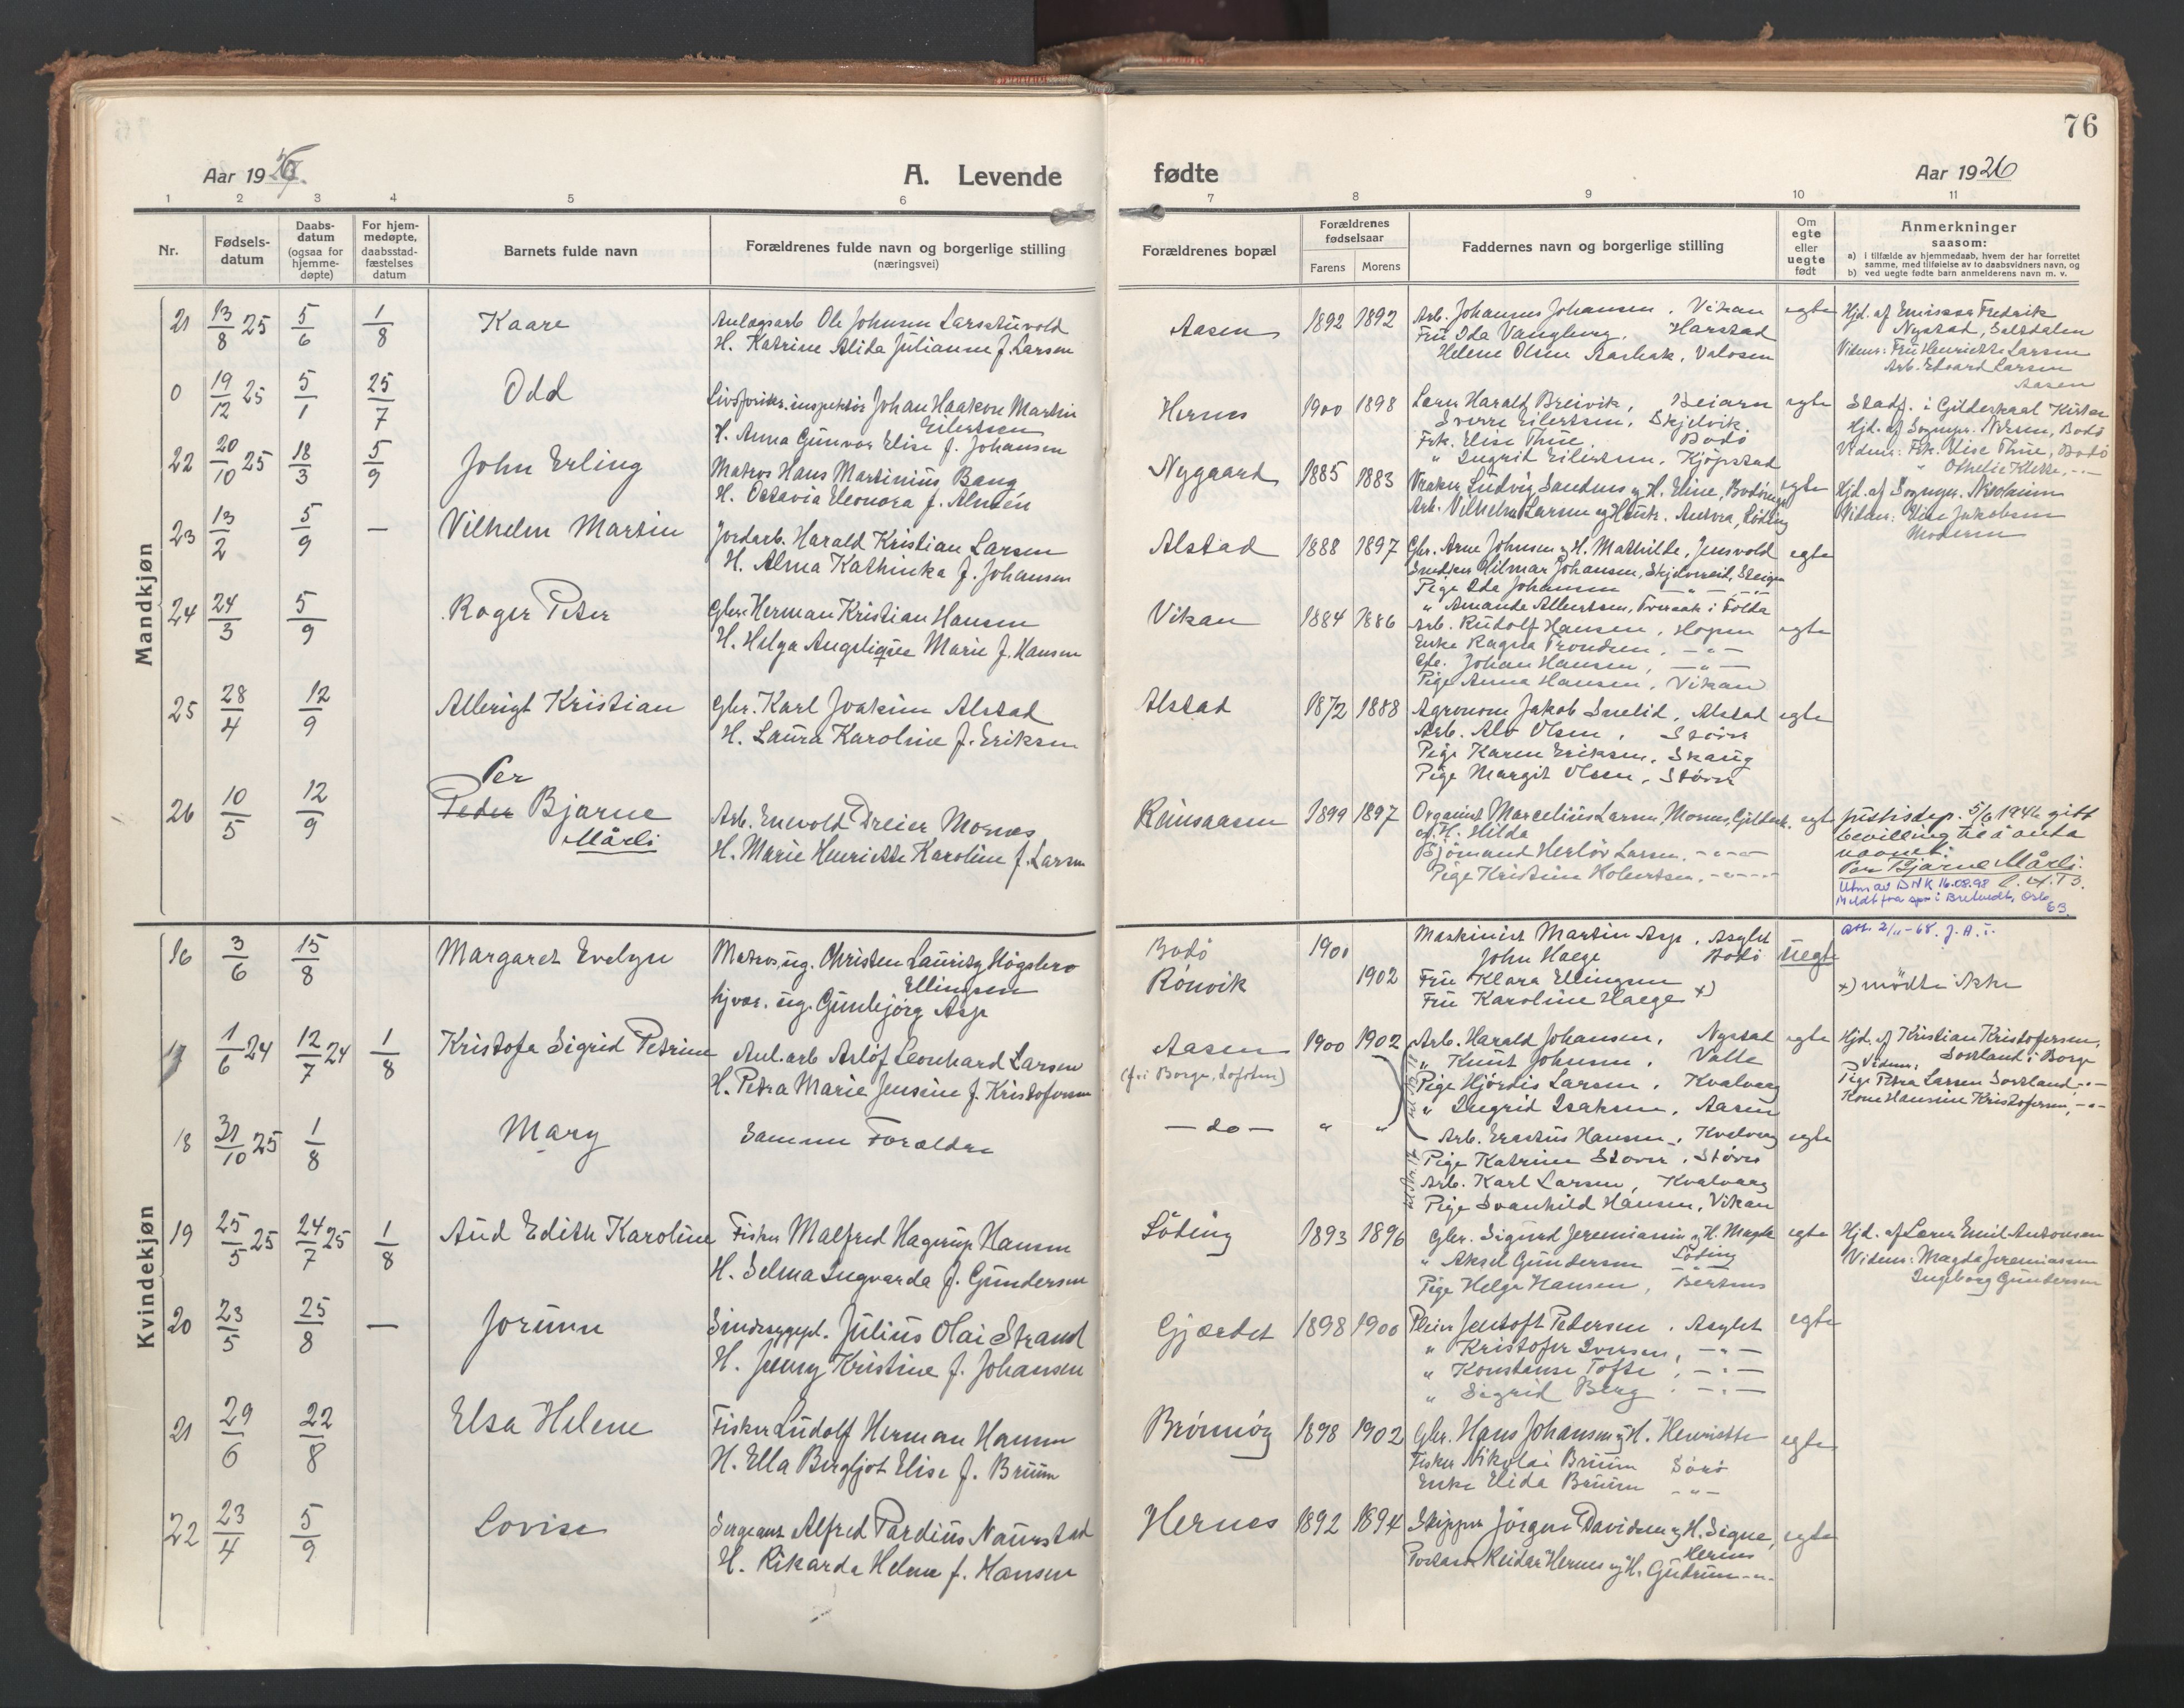 76
Aar 1926.
A. Levende
fødte
Aar 1926
1 2 3 4 5 6 7 8 9 10 11
Nr.
Fødsels-
datum
Daabs-
datum
(ogsaa for
hjemme-
døpte)
For hjem-
medøpte,
daabsstad-
fæstelses
datum
Barnets fulde navn
Forældrenes fulde navn og borgerlige stilling
(næringsvei)
Forældrenes bopæl
Forældrenes
fødselsaar
Farens Morens
Faddernes navn og borgerlige stilling
Om
egte
eller
uegte
født
Anmerkninger
saasom:
a) i tilfælde av hjemmedaab, hvem der har forrettet
samme, med tilføielse av to daabsvidners navn, og
b) ved uegte fødte barn anmelderens navn m. v.
Mandkjøn
21 13/8 25 5/6 1/8 Kaare
Anlægsarb Ole Johnsen
H. Katrine Alida Julianne f. Larsen
Aasen 1892 1892
Arb. Johannes Johansen, Vikan
Fru Ida Vangberg, Harstad
Helene Olsen, Valosen
egte
Hjd. af Emissær Fredrik
Nystad, Saltdalen
Vidner: Fru Henriette Larsen
Arb. Edvard Larsen
Aasen
0 19/12 25 5/1 25/7 Odd
Livsforsikr.inspektör Johan Haakon Martin
Eilertsen
H. Anna Gunvor Elise f. Johansen
Hernes 1900 1898
Lærer Harald Breivik, Beiarn
Sverre Eilertsen, Skjelvik
Frk. Elise Thue, Bodö
" Ingrid Eilertsen, Kjöpstad
egte
Stadf. i Gildeskaal Kirke
Hjd. af Sognepr. Nissen, Bodö
Vidner: Frk. Elise Thue, Bodö
" Othelie Klette, -"-
22 20/10 25 18/3 5/9 John Erling
Matros Hans Martinius Bang
H. Octavia Eleonora f. Alnsen
Nygaard 1885 1883
Vraker Ludvig Sandnes og H. Eline,
Arb. Vilhelm Larsen og Hustr. Antora, Löding
egte
Hjd. af Sognepr. Nicolaisen
Vidner: Elise Jakobsen
Moderen
23 13/2 5/9 — Vilhelm Martin
Jordarb. Harald Kristian Larsen
H. Alma Kathinka f. Johansen
Alstad 1888 1897
Gbr. Arne Johnsen og H. Mathilde, Jensvold
Snedker Hilmar Johansen, Steigen
Pige Ida Johansen -"- -"-
" Amanda Albertsen, i Folda
egte
24 24/3 5/9 Roger Peter
Gbr. Herman Kristian Hansen
H. Helga Angelique Marie f. Hansen
Vikan 1884 1886
Arb. Rudolf Hansen, Hopen
Enke Ragna Trondsen, -"-
Johan Hansen, -"-
Pige Anna Hansen, Vikan
egte
25 28/4 12/9 Albrigt Kristian
Gbr. Karl Joakim Alstad
H. Laura Karoline f. Eriksen
Alstad 1872 1888
Agronom Jakob Smelid, Alstad
Arb. Alv Olsen, Störs
Pige Karen Eriksen, Skaug
Pige Margit Olsen, Störs
egte
26 10/5 12/9
Per
Peder Bjarne
Mårli
Arb. Enevold Dreier Mornes
H. Marie Henriette Karoline f. Larsen
1899 1897
Organist Marcelius Larsen, Mornes, Gildesk.
og H. Hilda
Herlöv Larsen, -"-
Pige Kristine Holbertsen, -"-
egte
Justisdep. 5/6 1946 gitt
bevilling til å anta
navnet:
Per Bjarne Mårli.
Utm av DNK 16.08.98
Meldt fra spr i Bredtvedt, Oslo
63.
Kvindekjøn
16 3/6 15/8 Margaret Evelyn
Matros, ug. Christen Lauritz Högsbro
Ellingsen
tjver. ug. Gunbjörg Asp
Bodö 1900
Rönvik 1902
Maskinist Martin Asp, Asylet
John Haege Bodö
Fru Klara Ellingsen
Fru Karoline Haege x)
uegte
att. 2/11-68. J.A.
x) mödte ikke
17 1/6 24 12/7 24 1/8 Kristofa Sigrid Petrine
Anl.arb Arlöf Leonhard Larsen
H. Petra Marie Jensine f. Kristofersen
Aasen 1900 1902
(f. i Borge, Lofoten)
Arb. Harald Johansen, Nystad
" Knut Johnsen, Valle
Pige Hjördis Larsen, Kvalvaag
" Ingrid Isaksen, Aasen
egte
Hjd. af Kristian Kristofersen,
Sortland i Borge
Vidner:
Pige Petra Larsen Sortland -"-
Kone Hansine Kristofersen, -"-
18 31/10 25 1/8 Mary
Samme Forældre
— do — " "
Arb. Erastus Hansen, Kvalvaag
Pige Katrine Stover, Störs
Arb. Karl Larsen, Kvalvaag
Pige Svanhild Hansen, Vikan
egte
19 25/5 25 24/7 25 1/8 Aud Edith Karoline
Fisker Malfred Hagerup Hansen
H. Selma Ingvarda f. Gundersen
Löding 1893 1896
Gbr. Sigurd Jeremiassen og H. Magda
" Aksel Gundersen Löding
Pige Helga Hansen, Bertnes
egte
Hjd. af Lærer Emil Antonsen
Vidner: Magda Jeremiassen
Ingeborg Gundersen
20 23/5 25/8 — Jorunn
Sindssygepl. Julius Olai Strand
H. Jenny Kristine f. Johansen
Gjærdet 1898 1900
Pleier Jentoft Pedersen, Asylet
" Kristofer Iversen, -"-
" Konstanse Tofte, -"-
" Sigrid Berg, -"-
egte
21 29/6 22/8 Elsa Helene
Fisker Ludolf Herman Hansen
H. Ella Bergljot Elise f. Bruun
1898 1902
Gbr. Hans Johansen og H. Henriette
Fisker Nikolai Bruun Sörö
Enke Elida Bruun -"-
egte
22 23/4 5/9 Lovise
Sergeant Alfred Pardius Naurstad
H. Rikarda Helene f. Hansen
Hernes 1892 1894
Skipper Jörgen Davidsen og H. Signe,
Hernes
Reidar Hernes og H. Gudrun -"-
egte